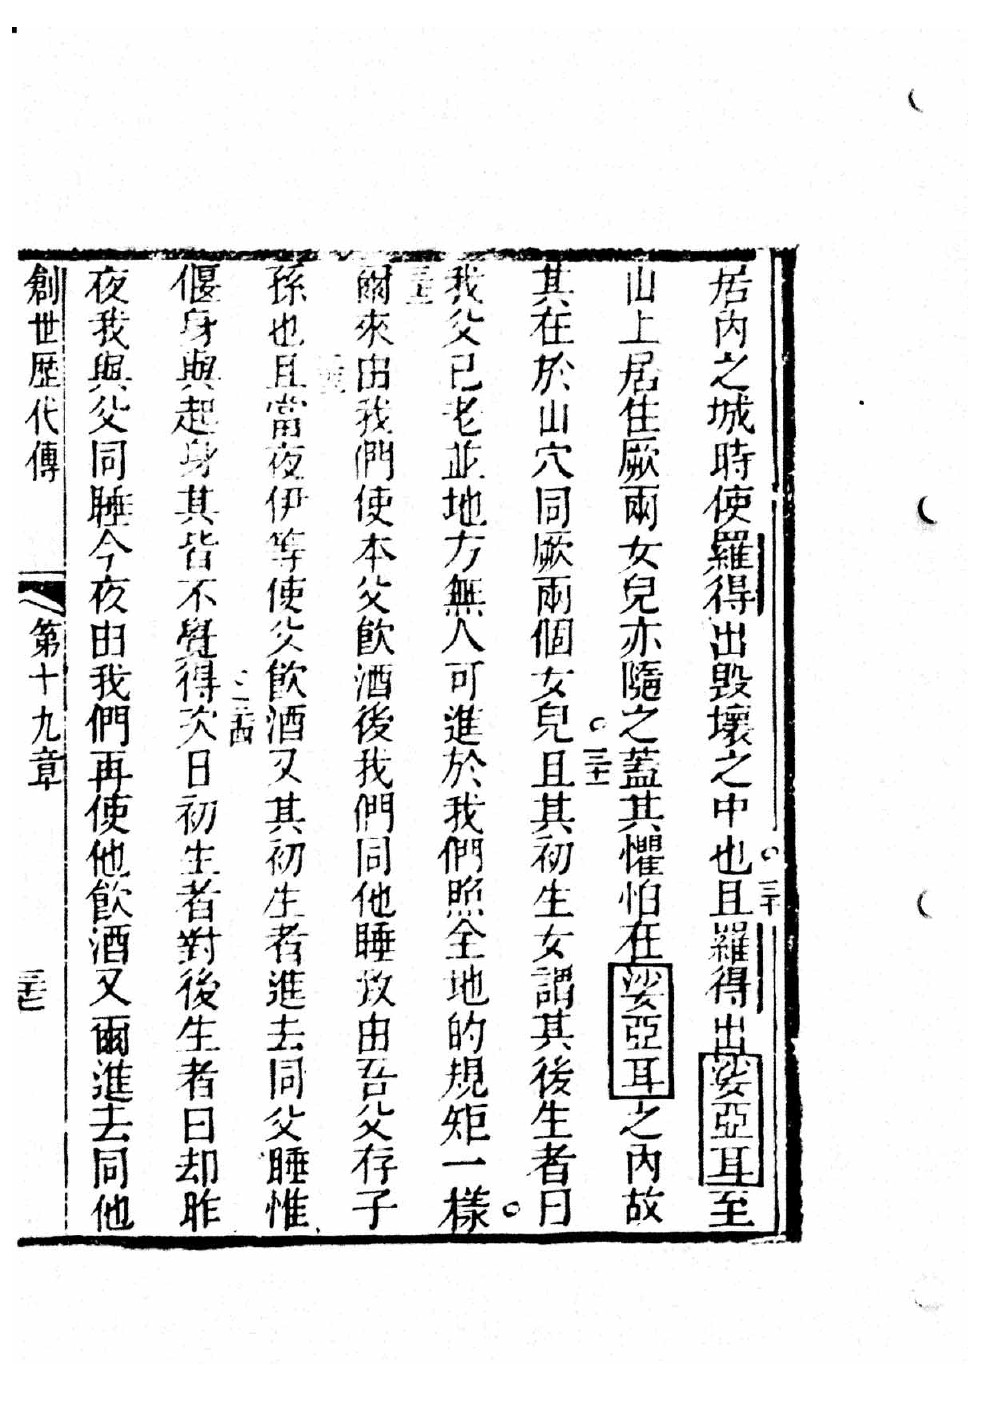 居內之城時使羅得出毀壞之中也且羅得出娑亞耳至
三十
山上居住厥兩女兒亦隨之蓋其懼怕在娑亞耳之內故
三十一
其在於山穴同厥兩個女兒且其初生女謂其後生者曰
我父已老並地方無人可進於我們照全地的規矩一樣
三十二
爾來由我們使本父飲酒後我們同他睡致由吾父存子
孫也且當夜伊等使父飲酒又其初生者進去同父睡惟
三十四
偃身與起身其皆不覺得次日初生者對後生者曰却昨
夜我與父同睡今夜由我們再使他飲酒又爾進去同他
創世歷代傳 第十九章 三十七